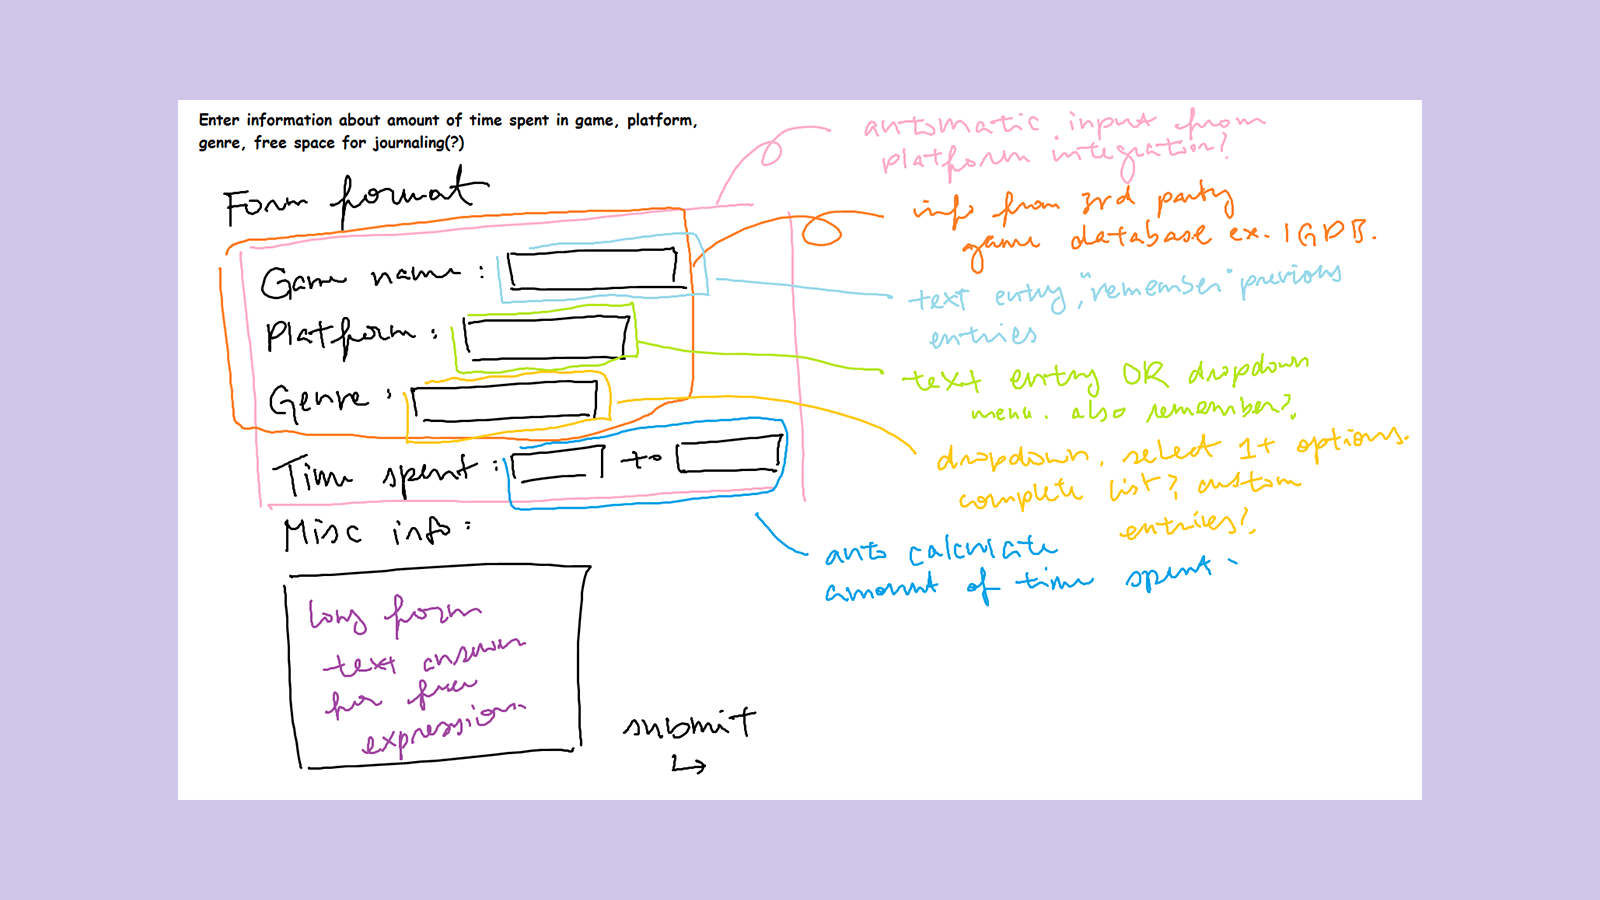 Enter information about amount of time spent in game, platform,
genre, free space for journaling(?)
Form format
Game name :
Platform :
Genre :
Time spent : to
Misc info :
long form
text answer
for free
expression.
submit
automatic input from
platform integration?
info from 3rd party
game database ex. IGDB.
text entry, "remember" previous
entries
text entry OR dropdown
menu. also remember?
dropdown, select 1+ options.
complete list? custom
entries?
auto calculate
amount of time spent.